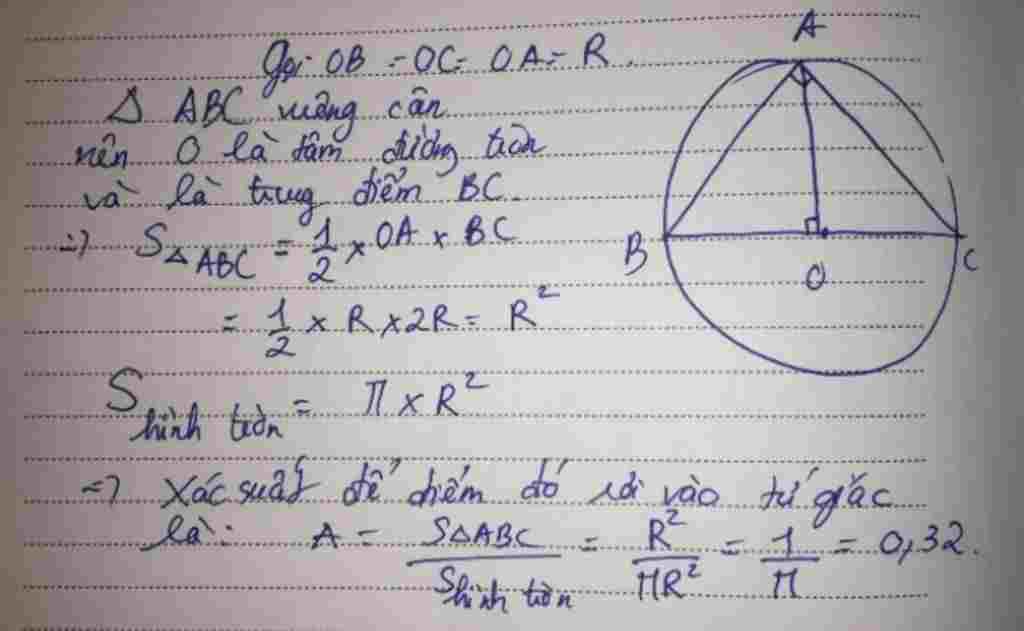 Gọi OB = OC = OA = R.
Δ ABC vuông cân
nên O là tâm đường tròn
và là trung điểm BC.
=> S Δ ABC = 1/2 x OA x BC
= 1/2 x R x 2R = R²
S hình tròn = π x R²
=> Xác suất để điểm đó rơi vào tứ giác
là: A = SΔABC / S hình tròn = R² / πR² = 1/π = 0,32.
A
B
C
O